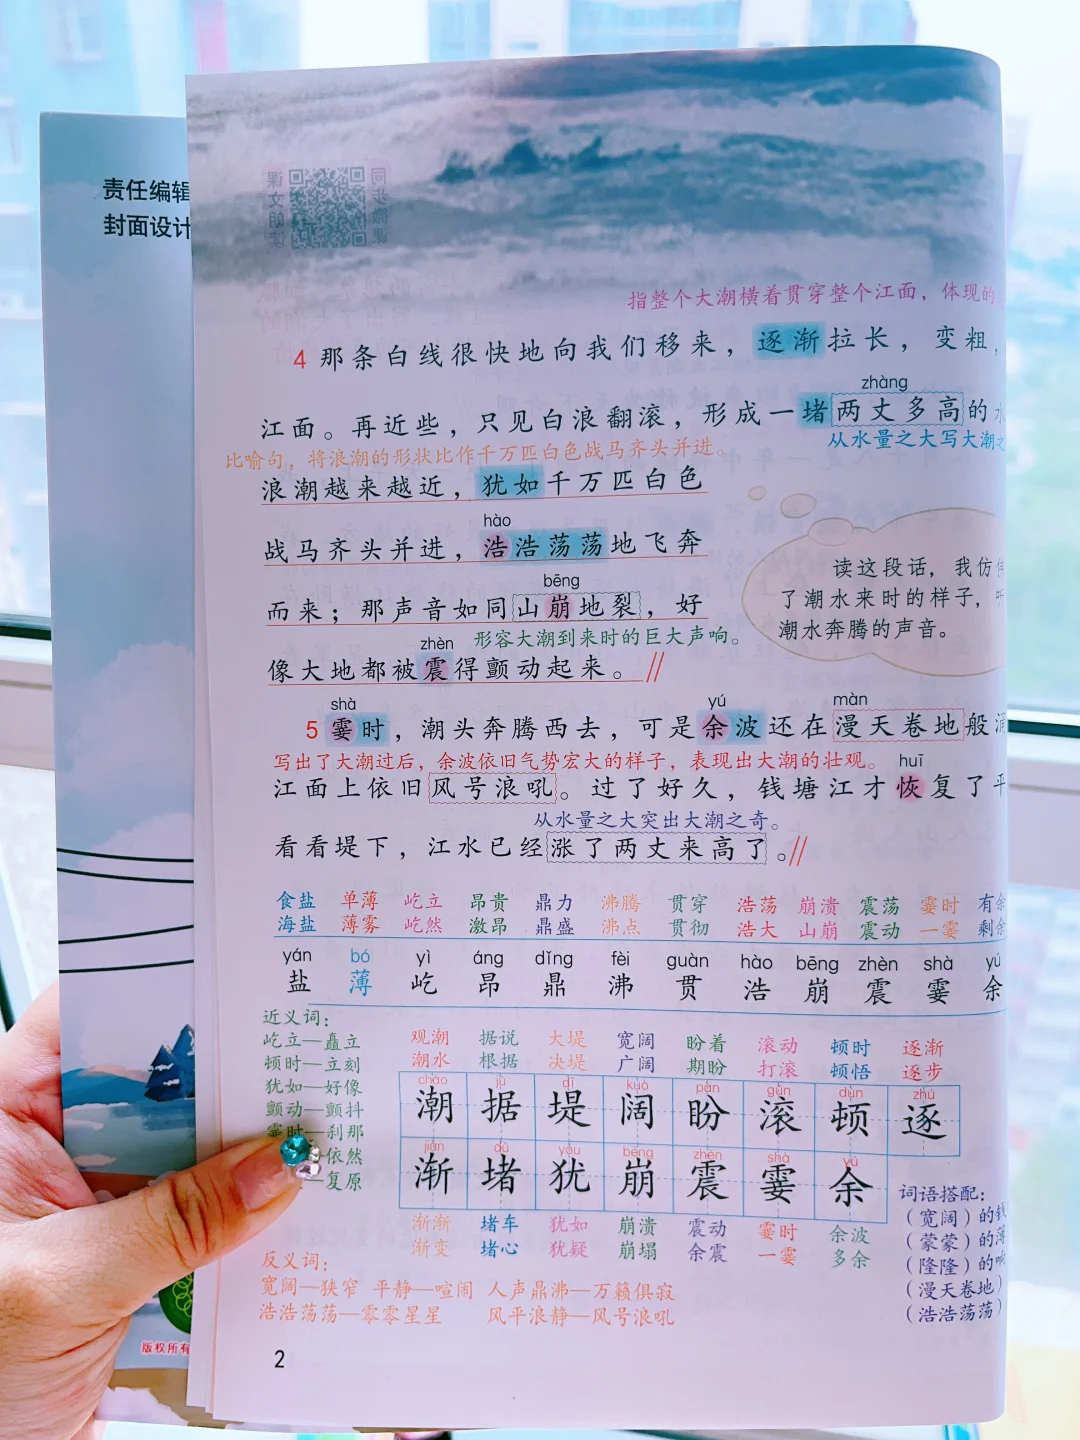 责任编辑
封面设计
同步微课
课文朗读
指整个大潮横着贯穿整个江面，体现的
4 那条白线很快地向我们移来，逐渐拉长，变粗，
zhàng
江面。再近些，只见白浪翻滚，形成一堵两丈多高的
从水量之大写大潮之
比喻句，将浪潮的形状比作千万匹白色战马齐头并进。
浪潮越来越近，犹如千万匹白色
hào
战马齐头并进，浩浩荡荡地飞奔
bēng
而来；那声音如同山崩地裂，好
形容大潮到来时的巨大声响。
zhèn
像大地都被震得颤动起来。//
读这段话，我仿
了潮水来时的样子，
潮水奔腾的声音。
shà yú màn
5 霎时，潮头奔腾西去，可是余波还在漫天卷地般涌
写出了大潮过后，余波依旧气势宏大的样子，表现出大潮的壮观。
huī
江面上依旧风号浪吼。过了好久，钱塘江才恢复了平
从水量之大突出大潮之奇。
看看堤下，江水已经涨了两丈来高了。//
食盐 单薄 屹立 昂贵 鼎力 沸腾 贯穿 浩荡 崩溃 震荡 霎时 有余
海盐 薄雾 屹然 激昂 鼎盛 沸点 贯彻 浩大 山崩 震动 一霎 剩余
yán bó yì áng dǐng fèi guàn hào bēng zhèn shà yú
盐 薄 屹 昂 鼎 沸 贯 浩 崩 震 霎 余
近义词：
屹立—矗立
顿时—立刻
犹如—好像
颤动—颤抖
霎时—刹那
—依然
—复原
观潮 据说 大堤 宽阔 盼着 滚动 顿时 逐渐
潮水 根据 决堤 广阔 期盼 打滚 顿悟 逐步
cháo jù dī kuò pàn gǔn dùn zhú
潮 据 堤 阔 盼 滚 顿 逐
jiàn dǔ yóu bēng zhèn shà yú
渐 堵 犹 崩 震 霎 余
渐渐 堵车 犹如 崩溃 震动 霎时 余波
渐变 堵心 犹疑 崩塌 余震 一霎 多余
词语搭配：
（宽阔）的钱
（蒙蒙）的薄
（隆隆）的响
（漫天卷地）
（浩浩荡荡）
反义词：
宽阔—狭窄 平静—喧闹 人声鼎沸—万籁俱寂
浩浩荡荡—零零星星 风平浪静—风号浪吼
版权所有
2